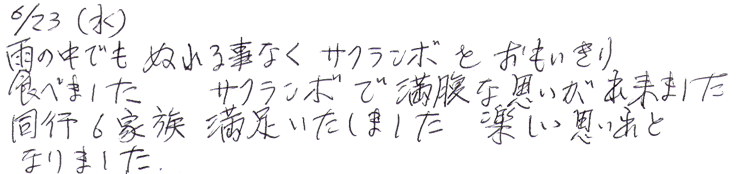 6/23 (水)
雨の中でも ぬれる事なく サクランボを おもいきり
食べました サクランボで満腹な思いが出来ました
同行6家族 満足いたしました 楽しい思い出と
なりました.